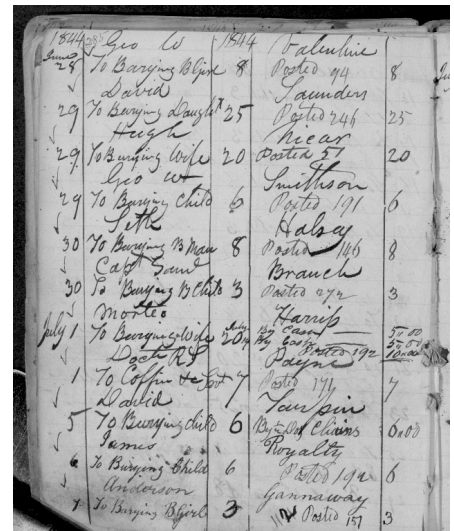 1844 Geo W 1844 Valentine
June 28 To Burying B Girl 8 Posted 94 8
David Saunders
29 To Burying Daught 25 Posted 246 25
Hugh Nicar
29 To Burying Wife 20 Posted 57 20
Geo W Smithson
29 To Burying Child 6 Posted 191 6
Seth Halsey
30 To Burying B Man 8 Posted 146 8
Capt Saml Branch
30 To Burying B Child 3 Posted 272 3
Harris
July 1 To Burying Wife 20 By Cash 5,00
By Cash 5,00
Posted 192 10,00
Doct R S Payne
1 To Coffin 7 Posted 171 7
David Turpin
5 To Burying Child 6 Chairs 6,00
James Royalty
6 To Burying Child 6 Posted 192 6
Anderson Gannaway
7 To Burying B Girl 3 Posted 157 3